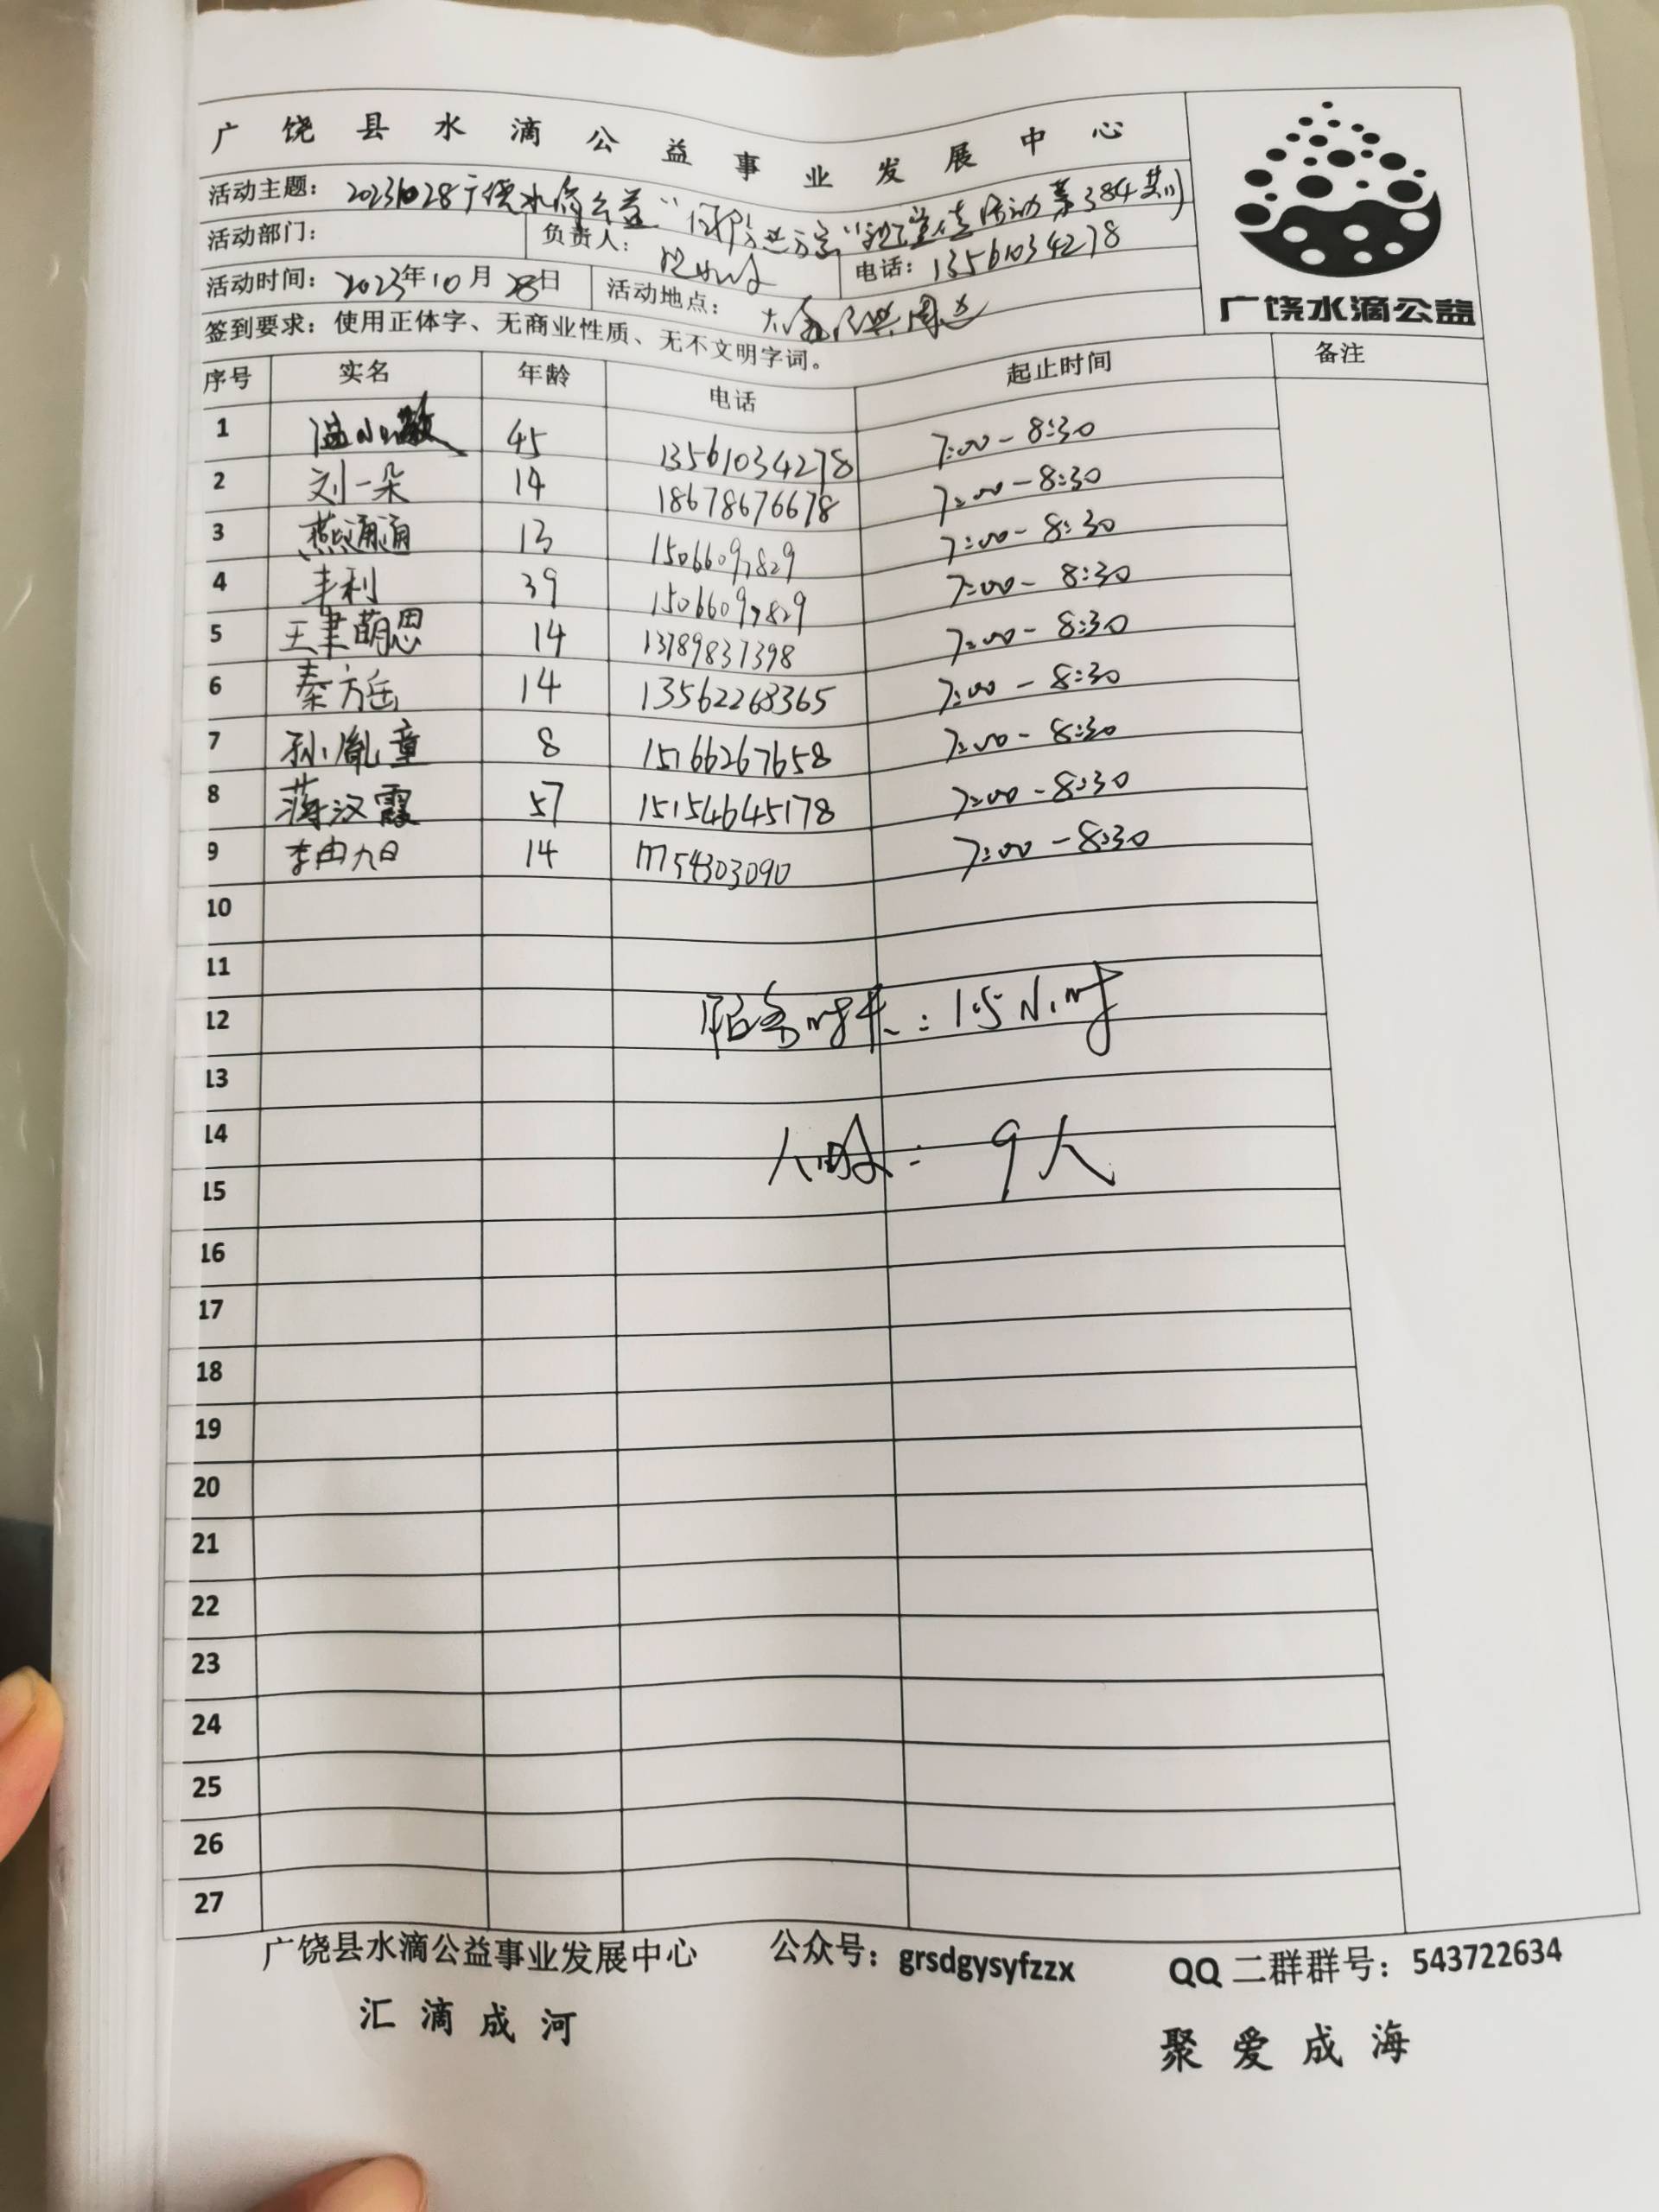 广饶县水滴公益事业发展中心
活动主题： 20231028广饶水滴公益" 活动第384期
活动部门： 负责人： 电话：13561034278
活动时间：2023年10月28日 活动地点： 周边
签到要求：使用正体字、无商业性质、无不文明字词。
广饶水滴公益
序号 实名 年龄 电话 起止时间 备注
1 45 13561034278 7:00-8:30
2 刘一朵 14 18678676678 7:00-8:30
3 燕涌涌 13 15066097829 7:00-8:30
4 丰利 39 15066097829 7:00-8:30
5 王聿萌思 14 13789837398 7:00-8:30
6 秦方岳 14 13562268365 7:00-8:30
7 孙胤童 8 15766267658 7:00-8:30
8 蒋汉霞 57 15154645178 7:00-8:30
9 李由九日 14 17754303090 7:00-8:30
10
11
12 服务时长：1.5小时
13
14 人数：9人
15
16
17
18
19
20
21
22
23
24
25
26
27
广饶县水滴公益事业发展中心 公众号：grsdgysyfzzx QQ 二群群号：543722634
汇滴成河 聚爱成海